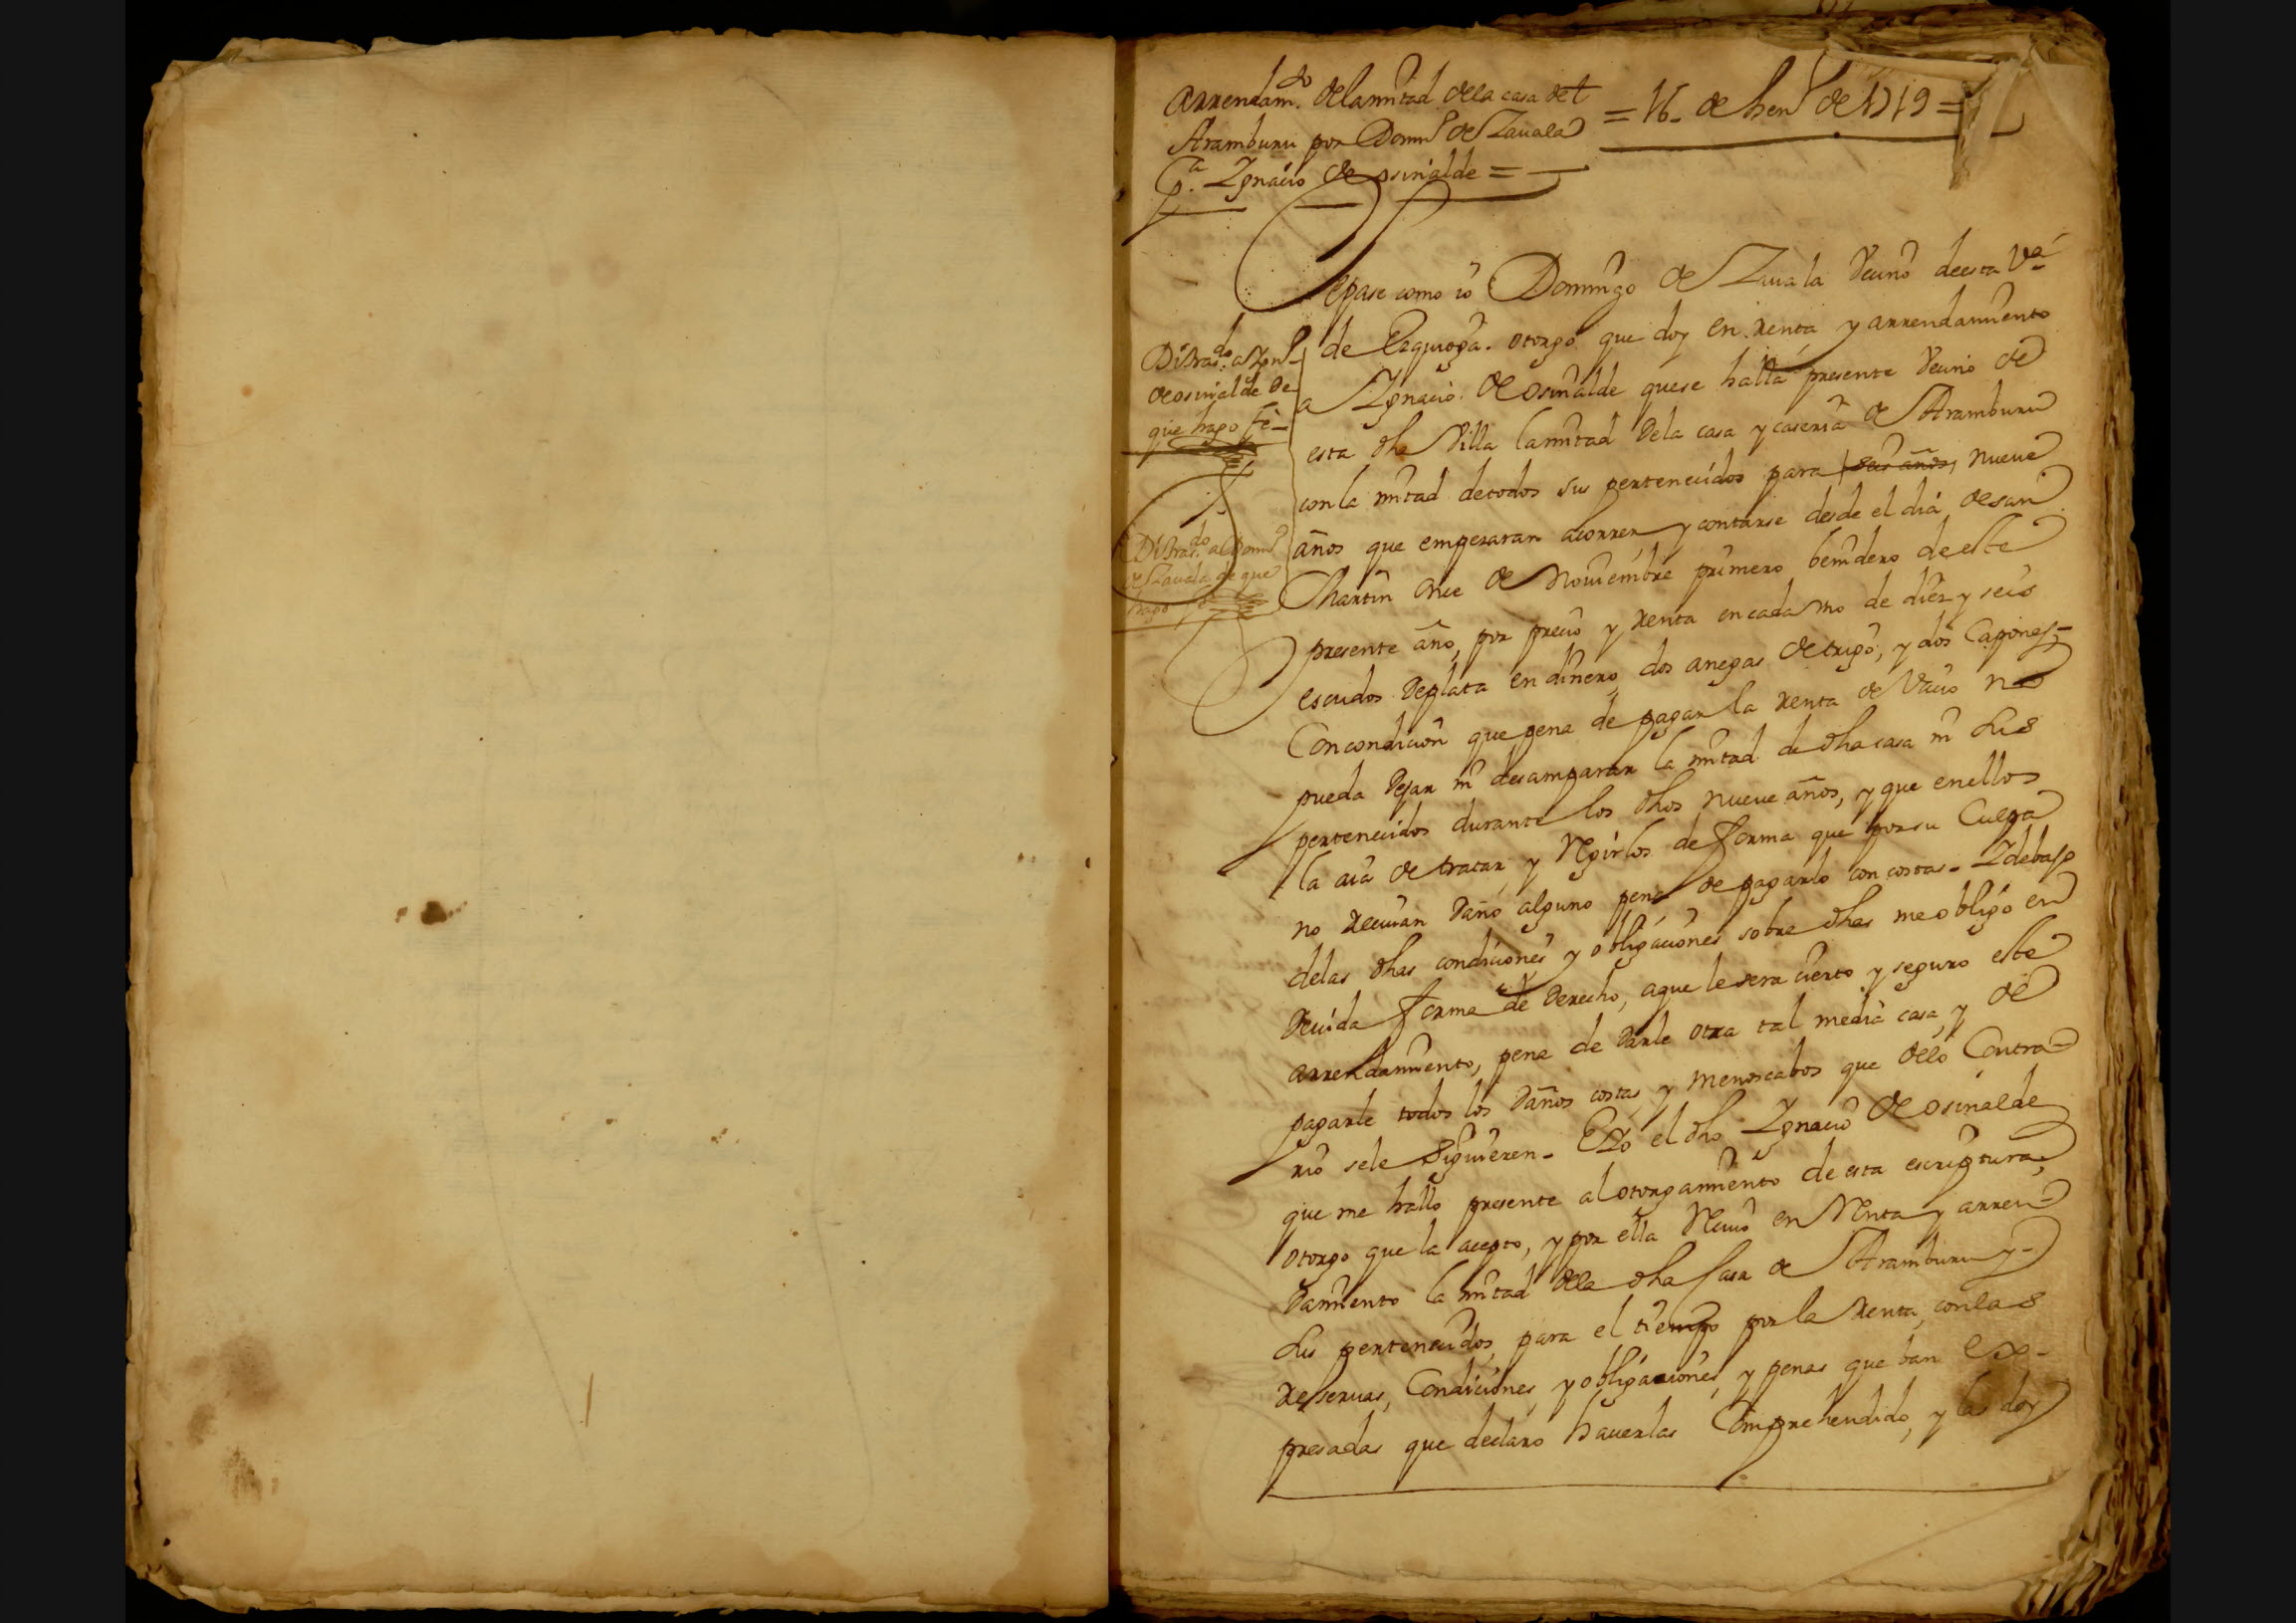 Arrendam.to de la mitad de la casa de
Aramburu por Dom.o de Zauala
p.a Ygnaçio de osinalde =
= 16 - de hen.o de 1719 =
Sepase como io Domingo de Zauala veçino de esta V.a
de Ezquioga. otorgo que doy en renta y arrendamiento
a Ygnaçio de osinalde que se halla presente veçino de
esta dha villa la mitad de la casa y caseria de Aramburu
con la mitad de todos sus perteneçidos para seis años, nueue
años que empezaran acorrer y contarse desde el dia de san
Martin onçe de Nouiembre primero benidero de este
presente año, por preçio y renta en cada vno de diez y seis
escudos de plata en dinero, dos anegas de trigo, y dos Capones,
Con condiçion que pena de pagar la renta de Vaçio no
pueda dejar ni desamparar la mitad de dha casa ni sus
perteneçidos durante los dhos nueue años, y que en ellos
la aia de tratar y Regirlos de forma que por su Culpa
no reciuan daño alguno pena de pagarlo con costas - Y debajo
de las dhas condiçiones y obligaçiones sobre dhas me obligo en
deuida forma de derecho, aque le sera çierto y seguro este
arrendamiento, pena de darle otra tal media casa, y de
pagarle todos los daños costas y menoscabos que de lo Contra-
rio se le siguieren - E Yo el dho Ygnaçio de osinalde
que me hallo presente al otorgamiento de esta escriptura,
otorgo que la acepto, y por ella Reçiuo en Renta y arren-
damiento la mitad de la dha Casa de Aramburu y
sus perteneçidos, para el tiempo por la renta, con las
reseruas, Condiçiones, y obligaçiones, y penas que ban ex-
presadas que declaro hauerlas Comprehendido, y las doy
Di tras.do a Ygn.o
de osinalde de
que hago fe -
Di tras.do a Dom.o
de Zauala de que
hago fe